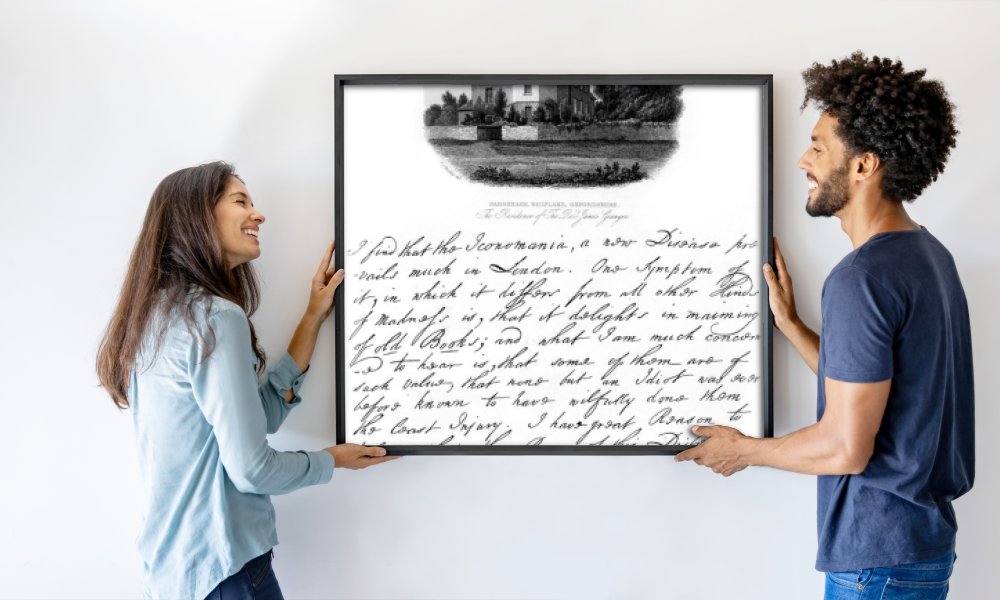 PARSONAGE, SHIPLAKE, OXFORDSHIRE.
The Residence of The Rev.d James Granger
I find that the Iconomania, a new Disease pre
-vails much in London. One Symptom of
it, in which it differs from all other Kinds
of Madness is, that it delights in maiming
of old Books; and, what I am much concern
-ed to hear is, that some of them are of
such value, that none but an Idiot was ever
before known to have wilfully done them
the least Injury. I have great Reason to
of this